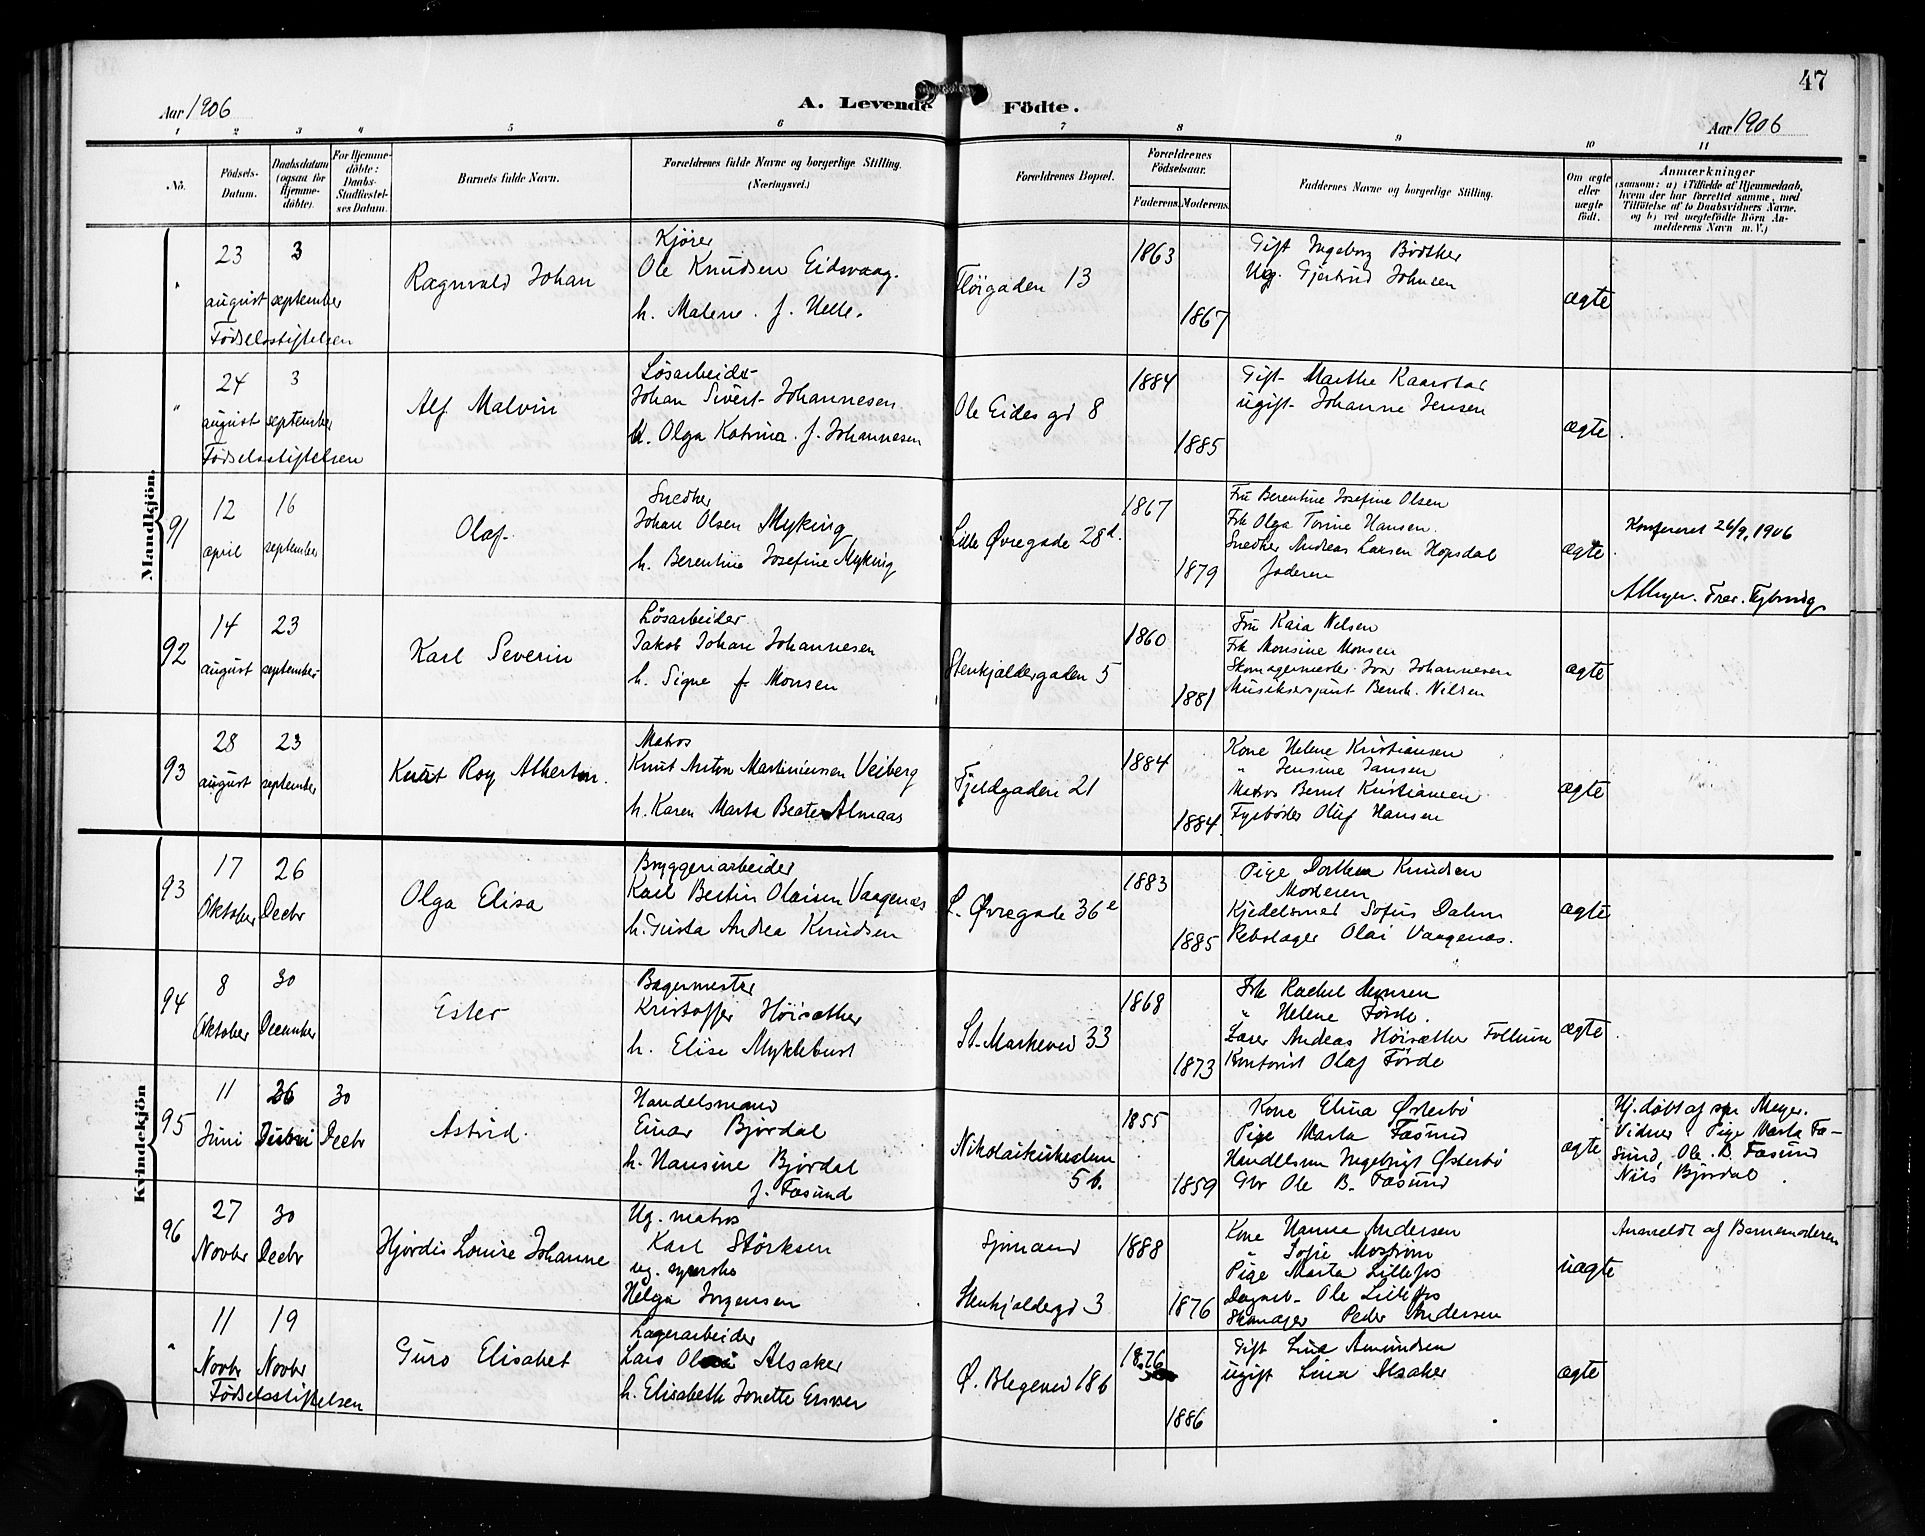 47
Aar 1906
A. Levende Födte.
Aar 1906
1 2 3 4 5 6 7 8 9 10 11
No.
Födsels-Datum.
Daabsdatum (ogsaa for Hjemme-döbte).
For Hjemme-döbte: Daabs-Stadfæstel-ses Datum.
Barnets fulde Navn.
Forældrenes fulde Navne og borgerlige Stilling.
(Næringsvei.)
Forældrenes Bopæl.
Forældrenes Födselsaar.
Faderens. Moderens.
Faddernes Navne og borgerlige Stilling.
Om ægte eller uægte födt.
Anmærkninger
(saasom: a) i Tilfælde af Hjemmedaab,
hvem der har forrettet samme, med
Tilföielse af to Daabsvidners Navne.
og b) ved uægtefödte Börn An-
melderens Navn m. V.)
Mandkjön.
"
23 august
3 september
Fødselsstiftelsen
Ragnvald Johan
Kjører
Ole Knudsen Eidsvaag.
h. Malene f. Helle.
Fløigaden 13
1863
1867
Gift Ingeborg Bødtker
Ug. Gjertrud Johnsen
ægte
"
24 august
3 september
Fødselsstiftelsen
Alf Malvin
Løsarbeider
Johan Sivert Johannesen
h. Olga Katrina f. Johannesen
Ole Eides gd 8
1884
1885
Gift Marthe
ugift Johanne Jensen
ægte
91
12 april
16 september
Olaf
Snedker
Johan Olsen Myking
h. Berentine Josefine Myking
Lille Øvregade 28d.
1867
1879
Fru Berentine Josefine Olsen
Frk Olga Torine Hansen.
Snedker Andreas Larsen Hopsdal
Faderen
ægte
Konfereret 26/9, 1906
92
14 august
23 september
Karl Severin
Løsarbeider
Jakob Johan Johannesen
h. Signe f Monsen
Stenkjældergaden 5
1860
1881
Fru Kaia Nilsen
Frk Monsine Monsen
Skomagermester Ivar Johannesen
Bernh. Nilsen
ægte
93
28 august
23 september
Knut Roy
Matros
Knut Anton Martiniussen Veiberg
h. Karen Marta Beate Almaas
Fjeldgaden 21
1884
1884.
Kone Helene Kristiansen
" Jensine Jansen
Matros Bernt Kristiansen
Fyrbøder Oluf Hansen
ægte
Kvindekjön
93
17 Oktober
26 Decbr
Olga Elisa
Bryggeriarbeider
Karl Bertin Olaisen Vaagenæs
h. Gusta Andrea Knudsen
L. Øvregade 36e
1883
1885
Pige Dorthea Knudsen
Moderen
Kjedelsmed Sofus Dahm
Rebslager Olai Vaagenæs.
ægte
94
8 Oktober
30 December
Ester
Bagermester
Kristoffer Höisæther
h. Elise Myklebust
St. Markevei 33
1868
1873
Frk Rachel Monsen
" Helene Førde.
Andreas Höisæther
Kontorist Olaf Førde
ægte
95
11 Juni
26
30 Decbr
Astrid
Handelsmand
Einar Bjørdal
h. Hansine Bjørdal
f. Fæsund
Nikolaikirkealm
5b.
1855
1859
Kone Elina Østerbø
Pige Marta Fæsund
Handelsm Ingebrigt Østerbø
Gbr Ole B. Fæsund
ægte
Hj. døbt af Meyer.
Vidner Pige Marta Fæ-
sund, Ole B. Fæsund
Nils Bjørdal
96
27 Novbr
30 Decbr
Hjördis Louise Johanne
Ug. matros
Karl Störksen
ug. syerske
Helga Jorgensen
Sjømand
Stenkjældegd 3
1888
1876
Kone Hanne Andersen
" Sofie Moström
Pige Marta
Dagarb. Ole
Skomager Peder Andersen
uægte
Anmeldt af Barnemoderen
"
11 Novbr
19 Novbr
Fødselsstiftelsen
Guro Elisabet
Lagerarbeider
Lars Alsaker
h. Elisabeth Jonette
Ø. Blegevei 18b
1876
1886
Gift Lina Amundsen
ugift Lina Alsaker
ægte